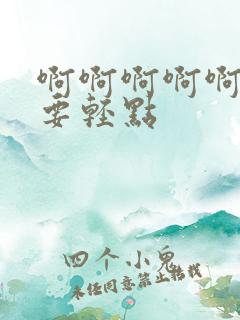 啊啊啊啊啊
要轻點
四个小鬼
未经同意禁止转载